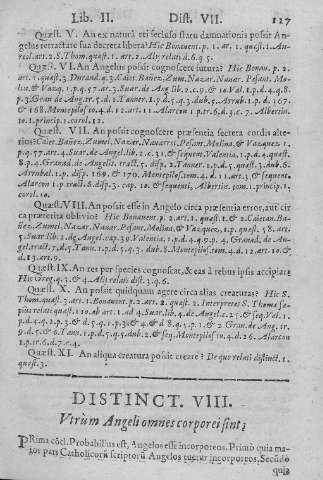 Lib. II. Dist. VII. 127
Quæst. V. An ex natura rei secluso statu damnationis possit An-
gelus retractare sua decreta libera? Hic Bonauent. p. 1. ar. 1. quæst. 1. Au-
reol. art. 2. S. Thom. quæst. 1. art. 2. Alij relati d. 6. q. 5.
Quæst. VI. An Angelus possit cognoscere futura? Hic Bonau. p. 2.
art. 1. quæst. 3. Durand. q. 3. Caiet. Bañez, Zum. Nazar. Nauar. Pesant. Mo-
lin. & Vazq. 1. p. q. 57. ar. 3. Suar. de Ang. lib. 2. c. 9. & 10. Val. 1. p. d. 4. q. 8.
p. 3. Gran. de Ang. tr. 5. d. 2. Tanner. 1. p. d. 5. q. 3. dub. 5. Arrub. 1. p. d. 167.
& 168. Montepilos. to. 4. d. 12. art. 11. Alarcon 1. p. tr. 6. d. 3. c. 7. Albertin.
10. 1. princip. 1. corol. 12.
Quæst. VII. An possit cognoscere præsentia secreta cordis alte-
rius? Caiet. Bañez, Zumel, Nazar. Nauarret. Pesant. Molina, & Vazquez 1.
p. q. 57. ar. 4. Suar. de Angel. lib. 2. c. 21. & sequent. Valentia, 1. p. d. 4. quæst.
8. p. 4. Granad. de Angelis. tract. 5. disp. 2. Tanner. 1. p. d. 5. quæst. 3. dub. 6.
Arrubal. 1. p. disp. 169. & 170. Montepilos. tom. 4. d. 11. art. 3. & sequent.
Alarcon 1. p. tract. 6. disp. 3. cap. 10. & sequenti, Albertin. tom. 1. princip. 1,
corol. 10.
Quæst. VIII. An possit esse in Angelo circa præsentia error, aut cir
ca præterita obliuio? Hic Bonauent. p. 2. art. 1. quæst. 1. & 2. Caietan. Ba-
ñez, Zumel, Nazar. Nauar. Pesant. Molina, & Vazquez, 1. p. quæst. 58. art.
5. Suar. lib. 2. de Angel. cap. 39. Valentia, 1. p. d. 4. q. 9. p. 4. Granad. de An-
gel. tract. 7. d. 3. Tann. 1. p. d. 5. q. 3. dub. 8. Montepilos. tom. 4. d. 12. art. 10. &
d. 13. art. 9.
Quæst. IX. An res per species cognoscat, & eas à rebus ipsis accipiat?
Hic Greg. q. 3. & 4. Alij relati dist. 3. q. 6.
Quæst. X. An possit quidquam agere circa alias creaturas? Hic S.
Thom. quæst. 3. art. 1. Bonauent. p. 2. art. 2. quæst. 1. Interpretes S. Thomæ sæ-
pius relati quæst. 110. ab art. 1. ad 4. Suar. lib. 4. de Angel. c. 25. & seq. Val. 1.
p. d. 5. q. 2. p. 3. & d. 5. q. 1. p. 3. & q. 4. & d 8. q. 3. p. 1. & 2 Gran. de Ang. tr.
9. d. 5. & 6. Tann. 1. p. d. 5. q. 5. dub. 2. & seq. Montepilos. to. 4. d. 26. Alarcon
1. p. tr. 6. d. 7. c. 4.
Quæst. XI. An aliqua creatura possit creare? De quo relati distinct. 1.
quæst. 3.
DISTINCT. VIII.
Vtrùm Angeli omnes corporei sint?
PRima cócl. Probabilius est, Angelos esse incorporeos. Primò quia ma-
ior pars Catholicorũ scriptorũ Angelos tuetur incorporeos, Secũdo
quia